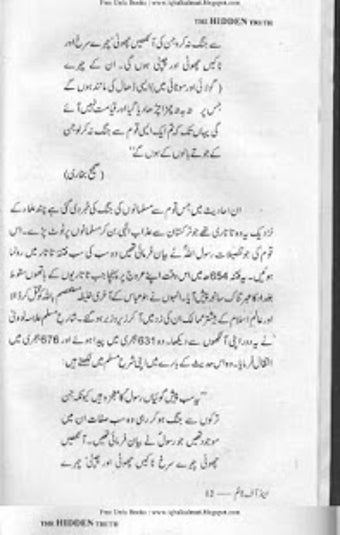 Free Urdu Books : www.iqbalkalmati.blogspot.com
THE HIDDEN TRUTH
سے جنگ نہ کرو جن کی آنکھیں چھوٹی، چہرے سرخ اور
ناکیں چھوٹی اور چپٹی ہوں گی۔ ان کے چہرے
(گولائی اور موٹائی میں) ایسی ڈھال کی مانند ہوں گے
جس پر تہ بہ تہ چمڑا چڑھا دیا گیا اور قیامت نہیں آئے
گی یہاں تک کہ تم ایک ایسی قوم سے جنگ نہ کر لو جن
کے جوتے بالوں کے ہوں گے"
(صحیح بخاری)
ان احادیث میں جس قوم سے مسلمانوں کی جنگ کی خبر دی گئی ہے چند علماء کے
نزدیک یہ وہ تاتاری تھے جو ترکستان سے عذاب الٰہی بن کر مسلمانوں پر ٹوٹ پڑے۔ اس
قوم کی جو تفصیلات رسول اللہؐ نے بیان فرمائی تھیں وہ سب کی سب فتنہ تاتار میں رونما
ہوئیں۔ یہ فتنہ 654ھ میں اس وقت اپنے عروج پر پہنچا جب تاتاریوں کے ہاتھوں سقوط
بغداد کا عبرتناک سانحہ پیش آیا۔ انہوں نے بنو عباس کے آخری خلیفہ مستعصم باللہ کو قتل کر ڈالا
اور عالم اسلام کے بیشتر ممالک ان کی زد میں آ کر زیر و زبر ہو گئے۔ شارح مسلم علامہ نووی
نے یہ دور اپنی آنکھوں سے دیکھا۔ وہ 631 ہجری میں پیدا ہوئے اور 676 ہجری میں
انتقال فرمایا۔ وہ اس حدیث کے بارے میں اپنی شرح مسلم میں لکھتے ہیں:
"یہ سب پیش گوئیاں رسولؐ کا معجزہ ہیں کیونکہ جن
ترکوں سے جنگ ہو کر رہی وہ سب صفات ان میں
موجود تھیں جو رسولؐ نے بیان فرمائی تھیں۔ آنکھیں
چھوٹی چہرے سرخ ناکیں چھوٹی اور چپٹی، چہرے
اینڈ آف ٹائم — 12
Free Urdu Books : www.iqbalkalmati.blogspot.com
THE HIDDEN TRUTH